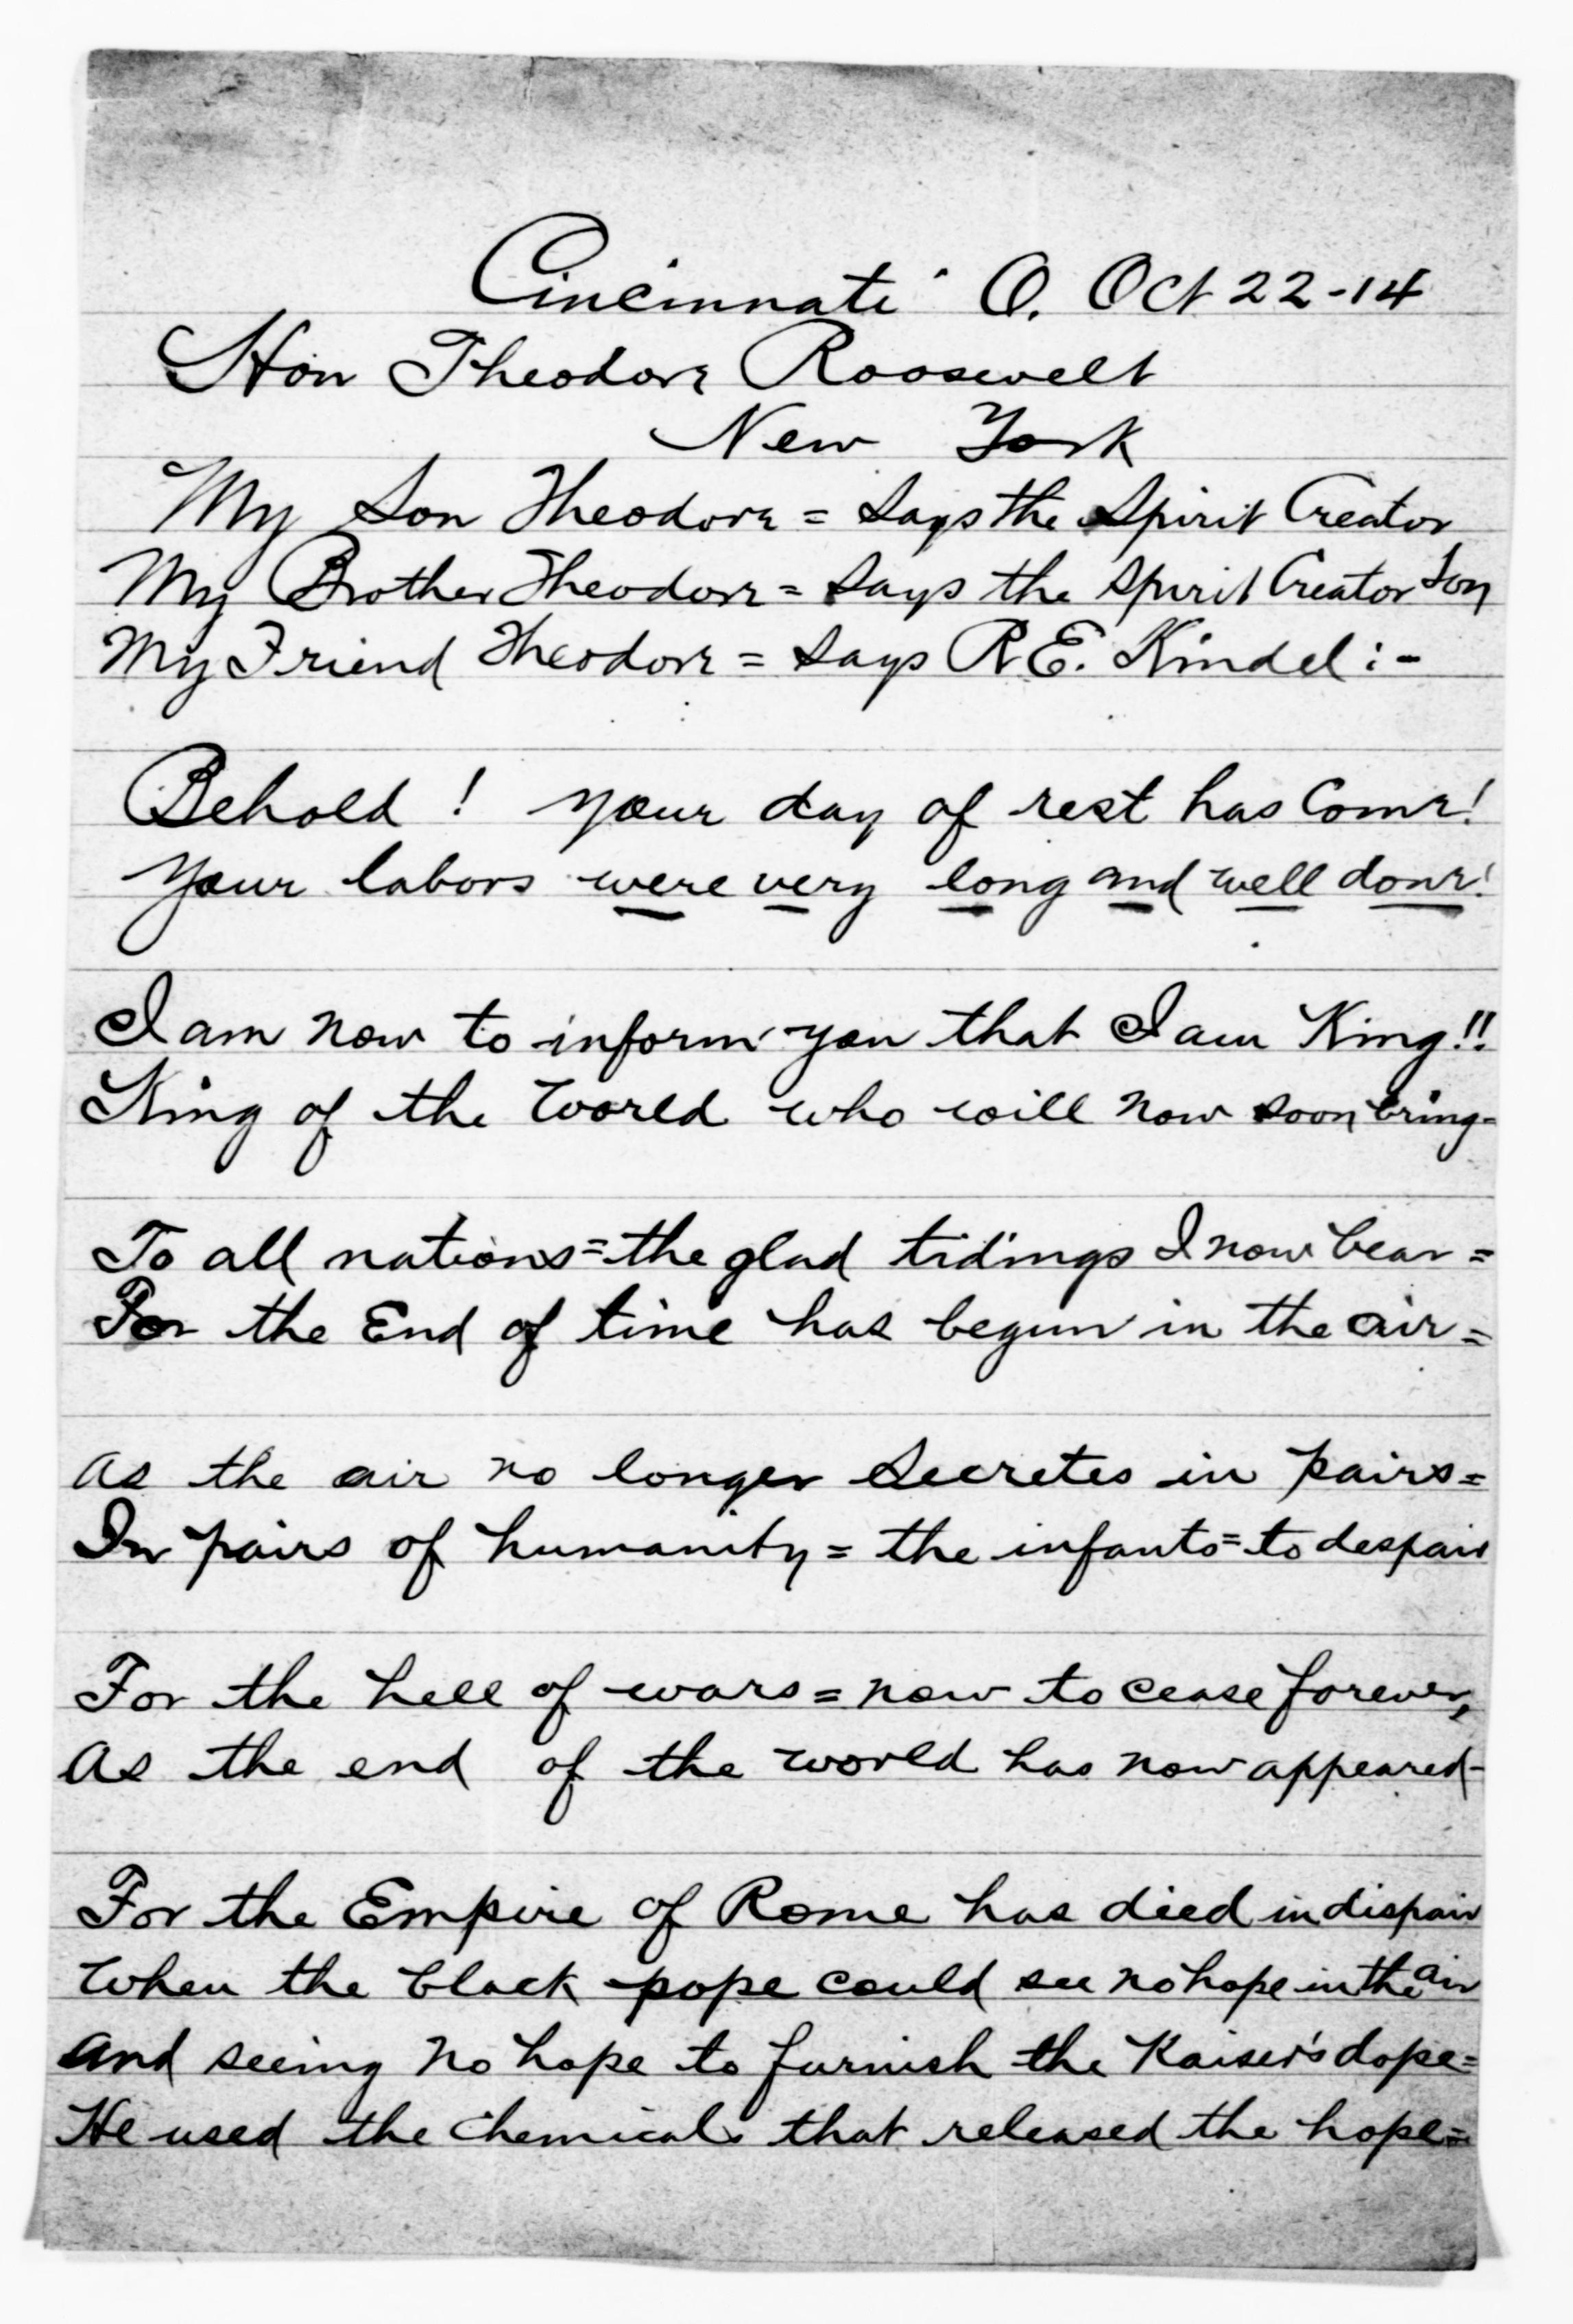 Cincinnati O. Oct 22-14
Hon Theodore Roosevelt
New York
My Son Theodore = Says the Spirit Creator
My Brother Theodore = Says the Spirit Creator Son
My Friend Theodore = Says R E. Kindel :-
Behold ! Your day of rest has Come!
Your labors were very long and well done!
I am now to inform you that I am King!!
King of the World who will now soon bring-
To all nations = the glad tidings I now bear =
For the End of time has begun in the air =
As the air no longer Secretes in pairs =
In pairs of humanity = the infants = to despair
For the hell of wars = now to cease forever,
As the end of the world has now appeared-
For the Empire of Rome has died in dispair
When the black pope could see no hope in the air
And seeing no hope to furnish the Kaiser's dope =
He used the Chemicals that released the hope =